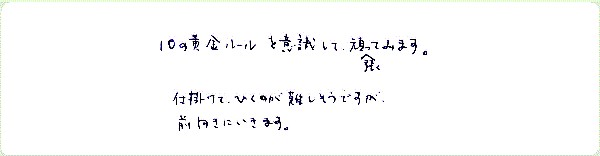 10の黄金ルールを意識して、頑ってみます。
張
仕掛けて、ひくのが難しそうですが、
前向きにいきます。